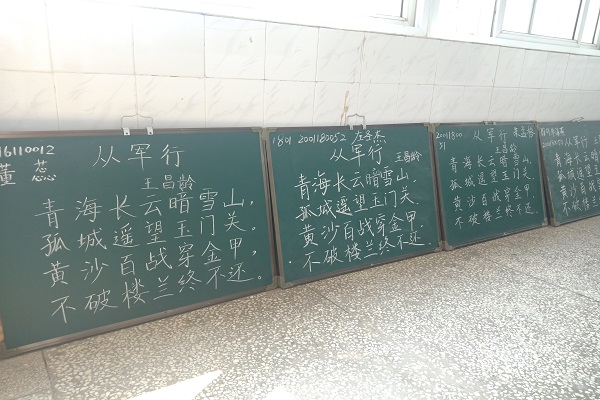 16110012
董蕊
从军行
王昌龄
青海长云暗雪山,
孤城遥望玉门关。
黄沙百战穿金甲,
不破楼兰终不还。
1801 2001180052
从军行
王昌龄
青海长云暗雪山,
孤城遥望玉门关。
黄沙百战穿金甲,
不破楼兰终不还.
20011800
31
从军行
青海长云暗雪山,
孤城遥望玉门关。
黄沙百战穿金甲,
不破楼兰终不还。
从军行